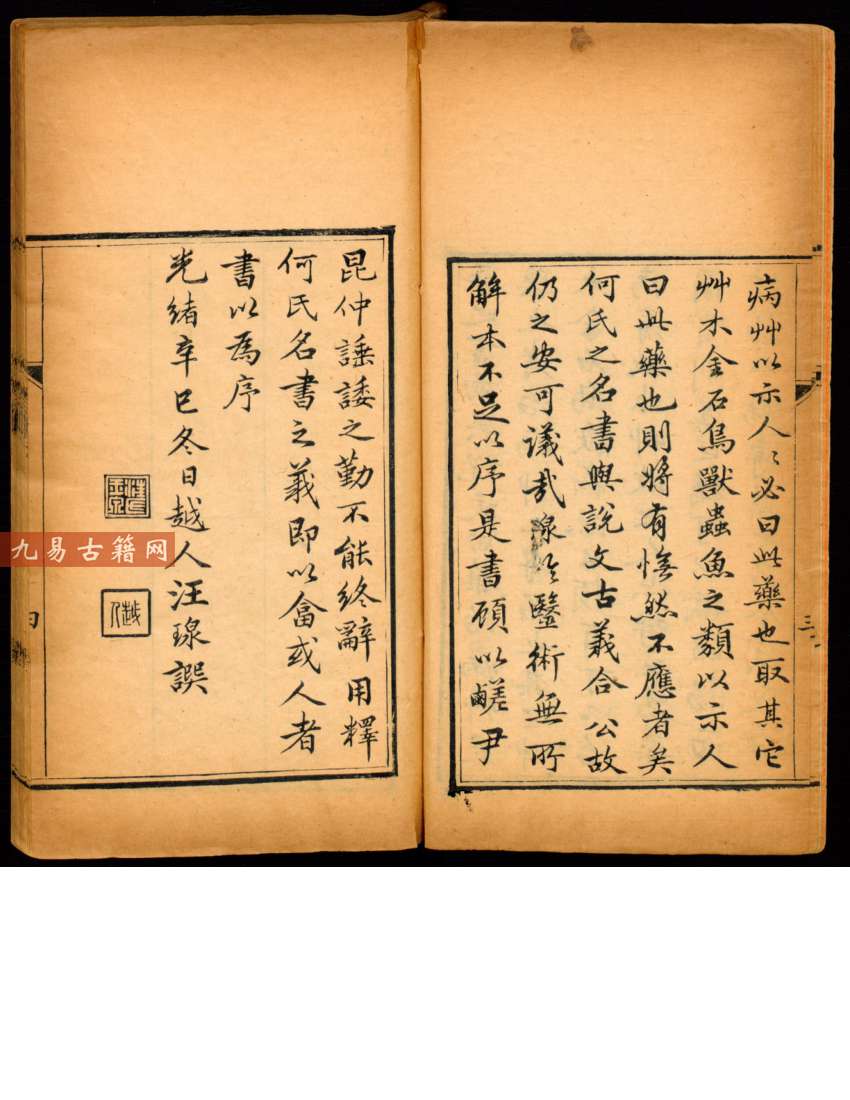 病艸以示人〻必曰此藥也取其它
艸木金石鳥獸蟲魚之類以示人
曰此藥也則將有憮然不應者矣
何氏之名書與說文古義合公故
仍之安可議哉瑔於醫術無所
解本不足以序是書顧以鹺尹
三
昆仲諈諉之勤不能終辭用釋
何氏名書之義即以畣或人者
書以為序
光緒辛巳冬日越人汪瑔譔
越人
四
九易古籍网